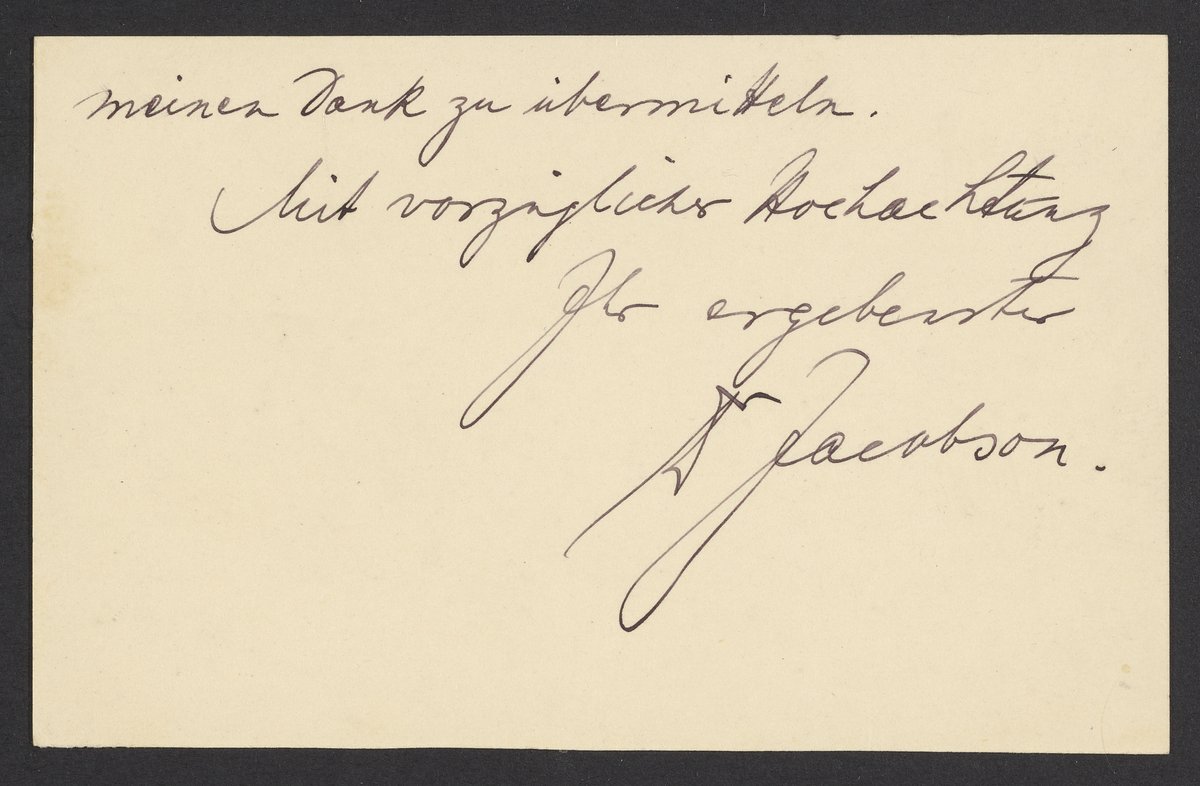 meinen Dank zu übermitteln.
Mit vorzüglicher Hochachtung
Ihr ergebenster
Dr Jacobson.